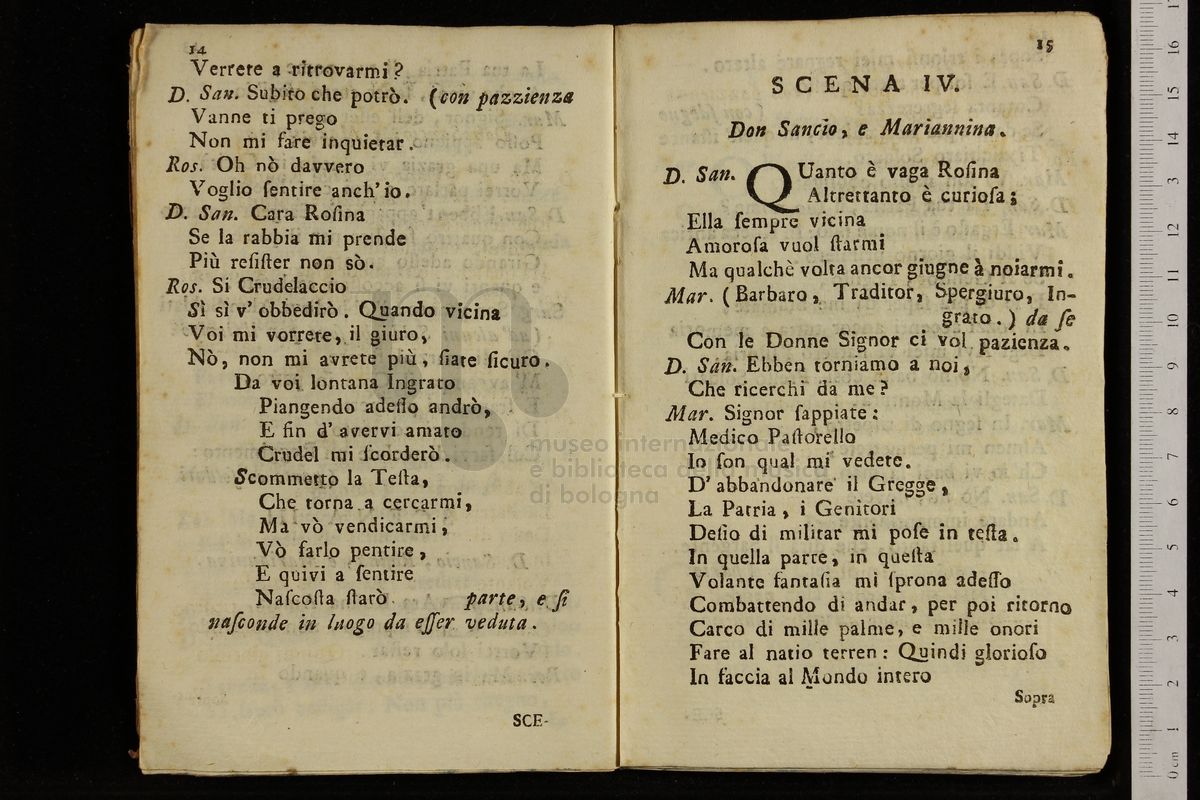 14
Verrete a ritrovarmi?
D. San. Subito che potrò. (con pazzienza
Vanne ti prego
Non mi fare inquietar.
Ros. Oh nò davvero
Voglio ſentire anch' io.
D. San. Cara Roſina
Se la rabbia mi prende
Più reſiſter non sò.
Ros. Si Crudelaccio
Sì sì v' obbedirò. Quando vicina
Voi mi vorrete, il giuro,
Nò, non mi avrete più, ſiate ſicuro.
Da voi lontana Ingrato
Piangendo adeſſo andrò,
E fin d' avervi amato
Crudel mi ſcorderò.
Scommetto la Teſta,
Che torna a cercarmi,
Ma vò vendicarmi,
Vò farlo pentire,
E quivi a ſentire
Naſcoſta ſtarò. parte, e ſi
naſconde in luogo da eſſer veduta.
SCE-
15
SCENA IV.
Don Sancio, e Mariannina.
D. San. QUanto è vaga Roſina
Altrettanto è curioſa;
Ella ſempre vicina
Amoroſa vuol ſtarmi
Ma qualchè volta ancor giugne à noiarmi.
Mar. (Barbaro, Traditor, Spergiuro, In-
grato.) da ſe
Con le Donne Signor ci vol pazienza.
D. San. Ebben torniamo a noi,
Che ricerchi da me?
Mar. Signor ſappiate:
Medico Paſtorello
Io ſon qual mi vedete.
D' abbandonare il Gregge,
La Patria, i Genitori
Deſio di militar mi poſe in teſta.
In quella parte, in queſta
Volante fantaſia mi ſprona adeſſo
Combattendo di andar, per poi ritorno
Carco di mille palme, e mille onori
Fare al natio terren: Quindi glorioſo
In faccia al Mondo intero
Sopra
museo internazionale
e biblioteca della musica
di bologna
0 cm 1 2 3 4 5 6 7 8 9 10 11 12 13 14 15 16 17